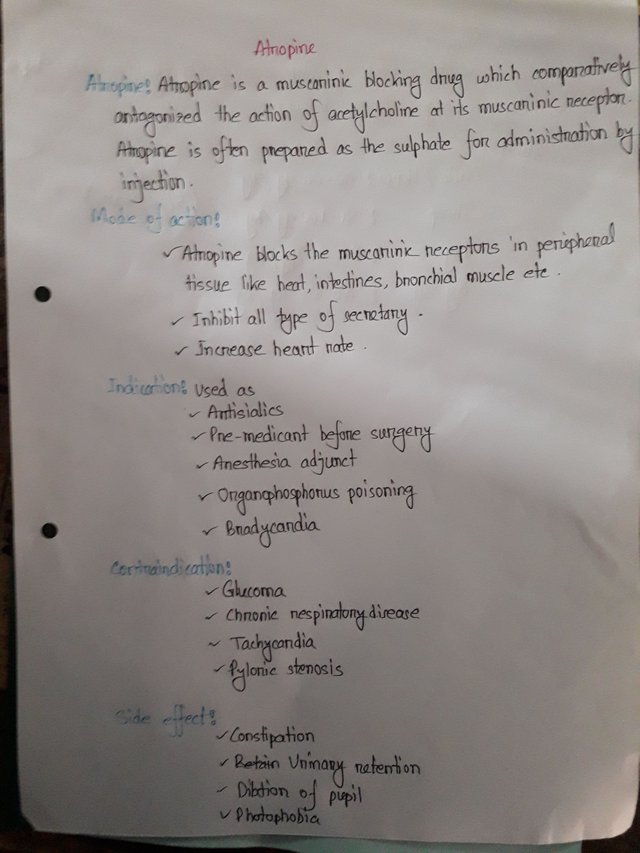 Atropine
Atropine: Atropine is a muscarinic blocking drug which comparatively
antagonized the action of acetylcholine at its muscarinic receptor.
Atropine is often prepared as the sulphate for administration by
injection.
Mode of action:
✓ Atropine blocks the muscarinic receptors in peripheral
tissue like heat, intestines, bronchial muscle etc.
✓ Inhibit all type of secretary.
✓ Increase heart rate.
Indication: Used as
✓ Antisialics
✓ Pre-medicant before surgery
✓ Anesthesia adjunct
✓ Organophosphorus poisoning
✓ Bradycardia
Contraindication:
✓ Glucoma
✓ Chronic respiratory disease
✓ Tachycardia
✓ Pyloric stenosis
Side effect:
✓ Constipation
✓ Retain Urinary retention
✓ Diltion of pupil
✓ Photophobia